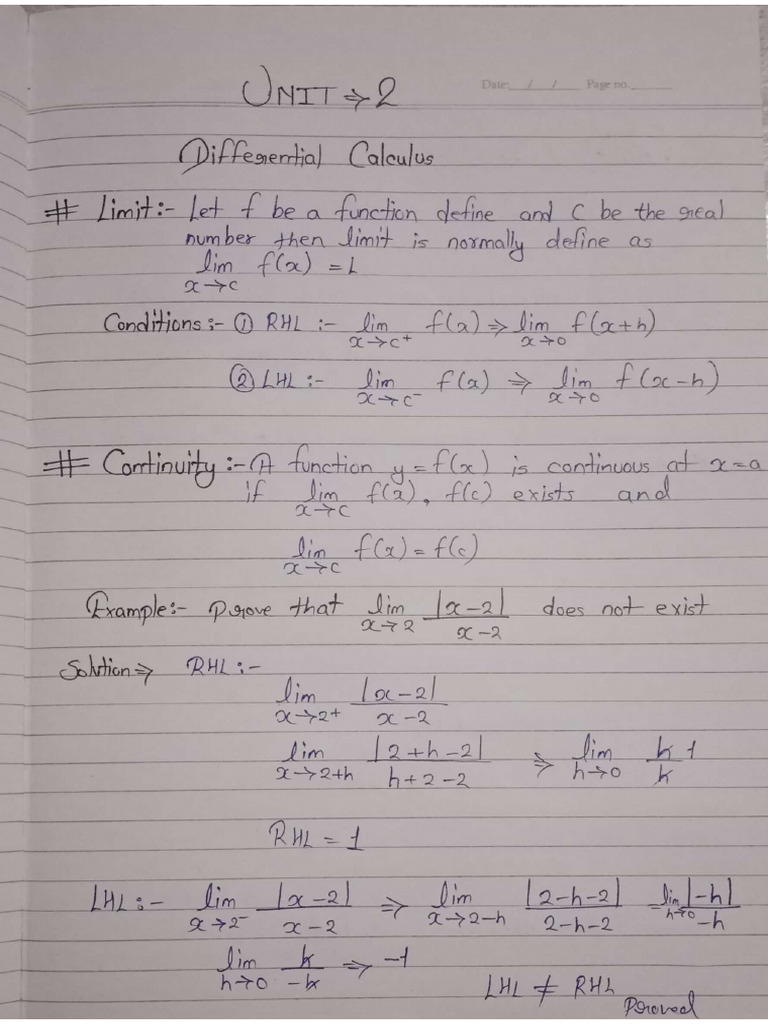 Date: / / Page no.
UNIT ⇒ 2
Differential Calculus
# Limit :- Let f be a function define and C be the real
number then limit is normally define as
lim x→c f(x) = L
Conditions :- ① RHL :- lim x→c⁺ f(x) ⇒ lim x→0 f(x+h)
② LHL :- lim x→c⁻ f(x) ⇒ lim x→0 f(x-h)
# Continuity :- A function y = f(x) is continuous at x = a
if lim x→c f(x), f(c) exists and
lim x→c f(x) = f(c)
Example :- Prove that lim x→2 |x-2| / x-2 does not exist
Solution ⇒ RHL :-
lim x→2+ |x-2| / x-2
lim x→2+h |2+h-2| / h+2-2 ⇒ lim h→0 h / h 1
RHL = 1
LHL :- lim x→2⁻ |x-2| / x-2 ⇒ lim x→2-h |2-h-2| / 2-h-2 = lim h→0 |-h| / -h
lim h→0 h / -h ⇒ -1
LHL ≠ RHL
Proved